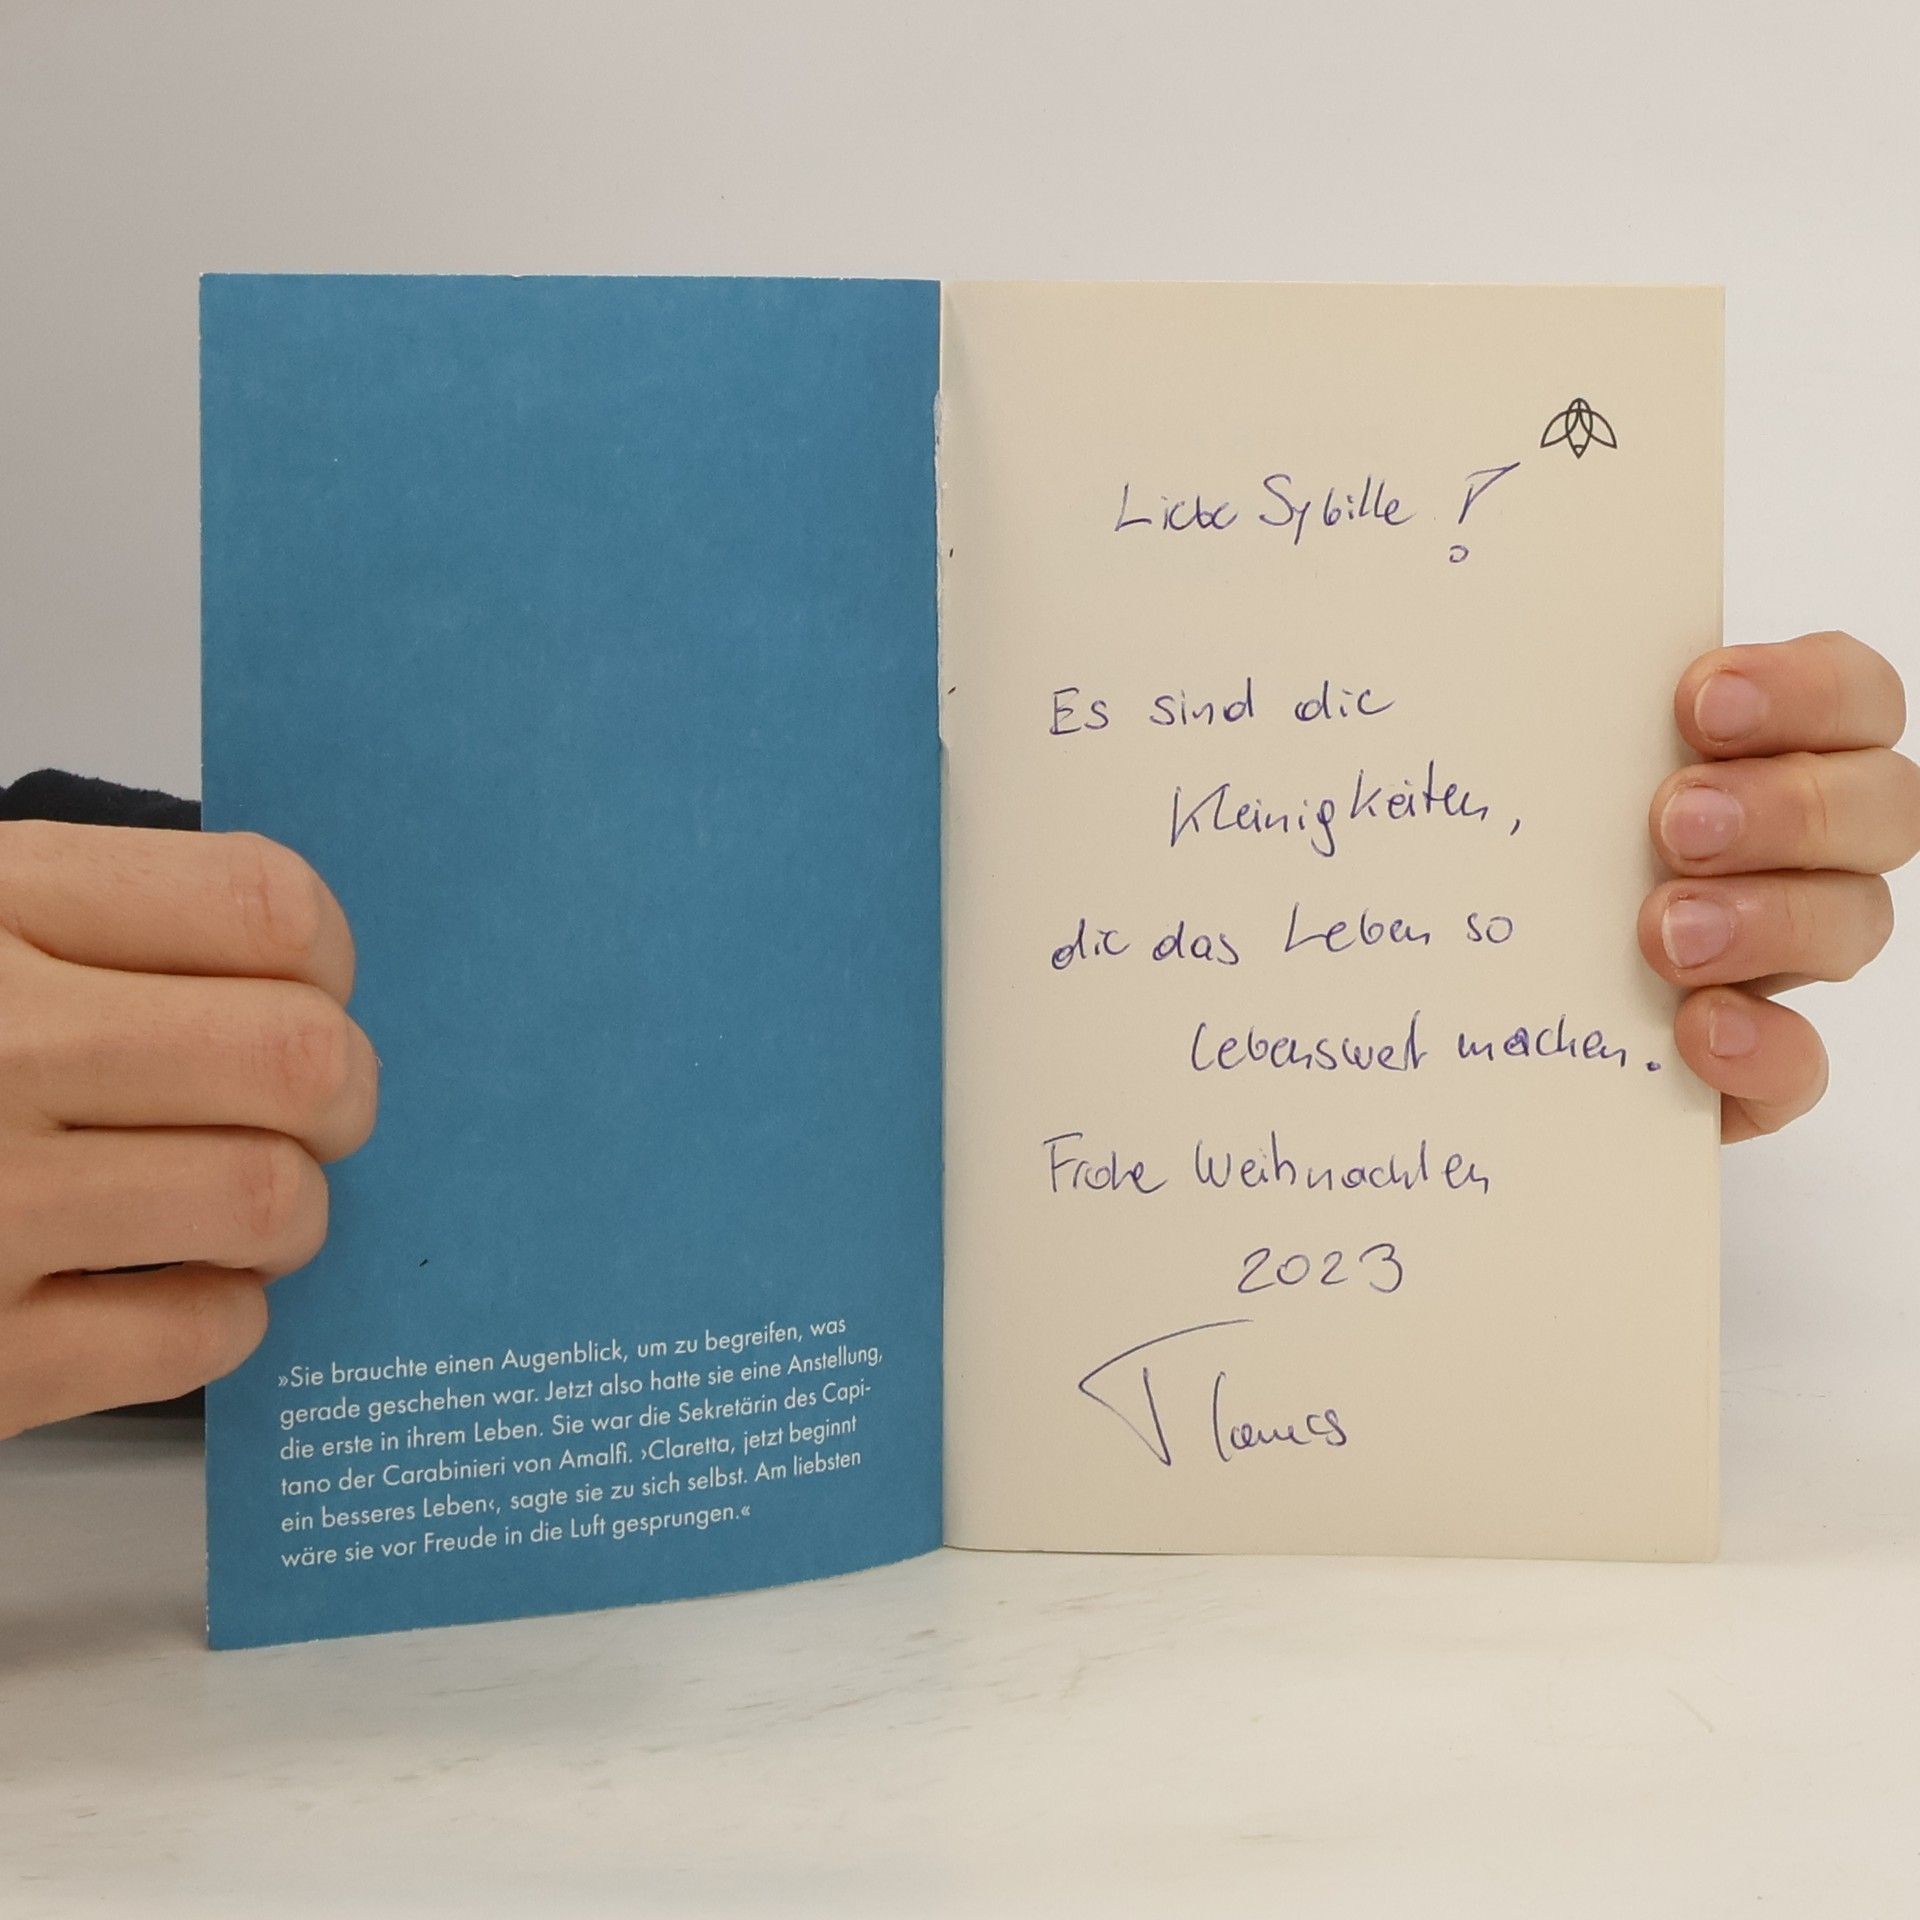 »Sie brauchte einen Augenblick, um zu begreifen, was
gerade geschehen war. Jetzt also hatte sie eine Anstellung,
die erste in ihrem Leben. Sie war die Sekretärin des Capi-
tano der Carabinieri von Amalfi. ›Claretta, jetzt beginnt
ein besseres Leben‹, sagte sie zu sich selbst. Am liebsten
wäre sie vor Freude in die Luft gesprungen.«
Liebe Sybille !
Es sind die
Kleinigkeiten,
die das Leben so
lebenswert machen.
Frohe Weihnachten
2023